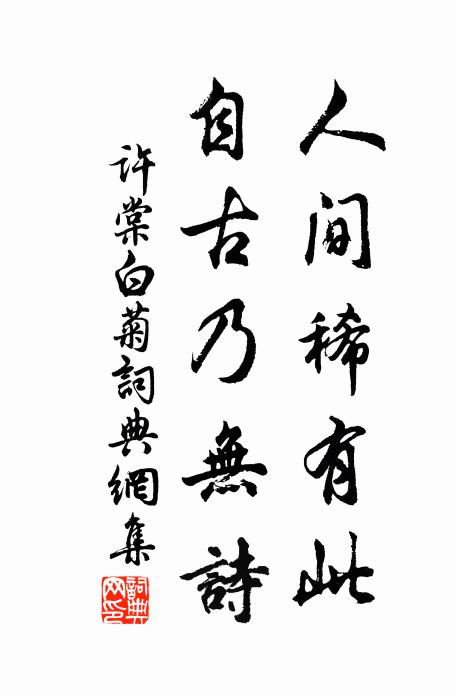 人間稀有此
自古乃無詩
許棠白菊詞典網集
詞典網印